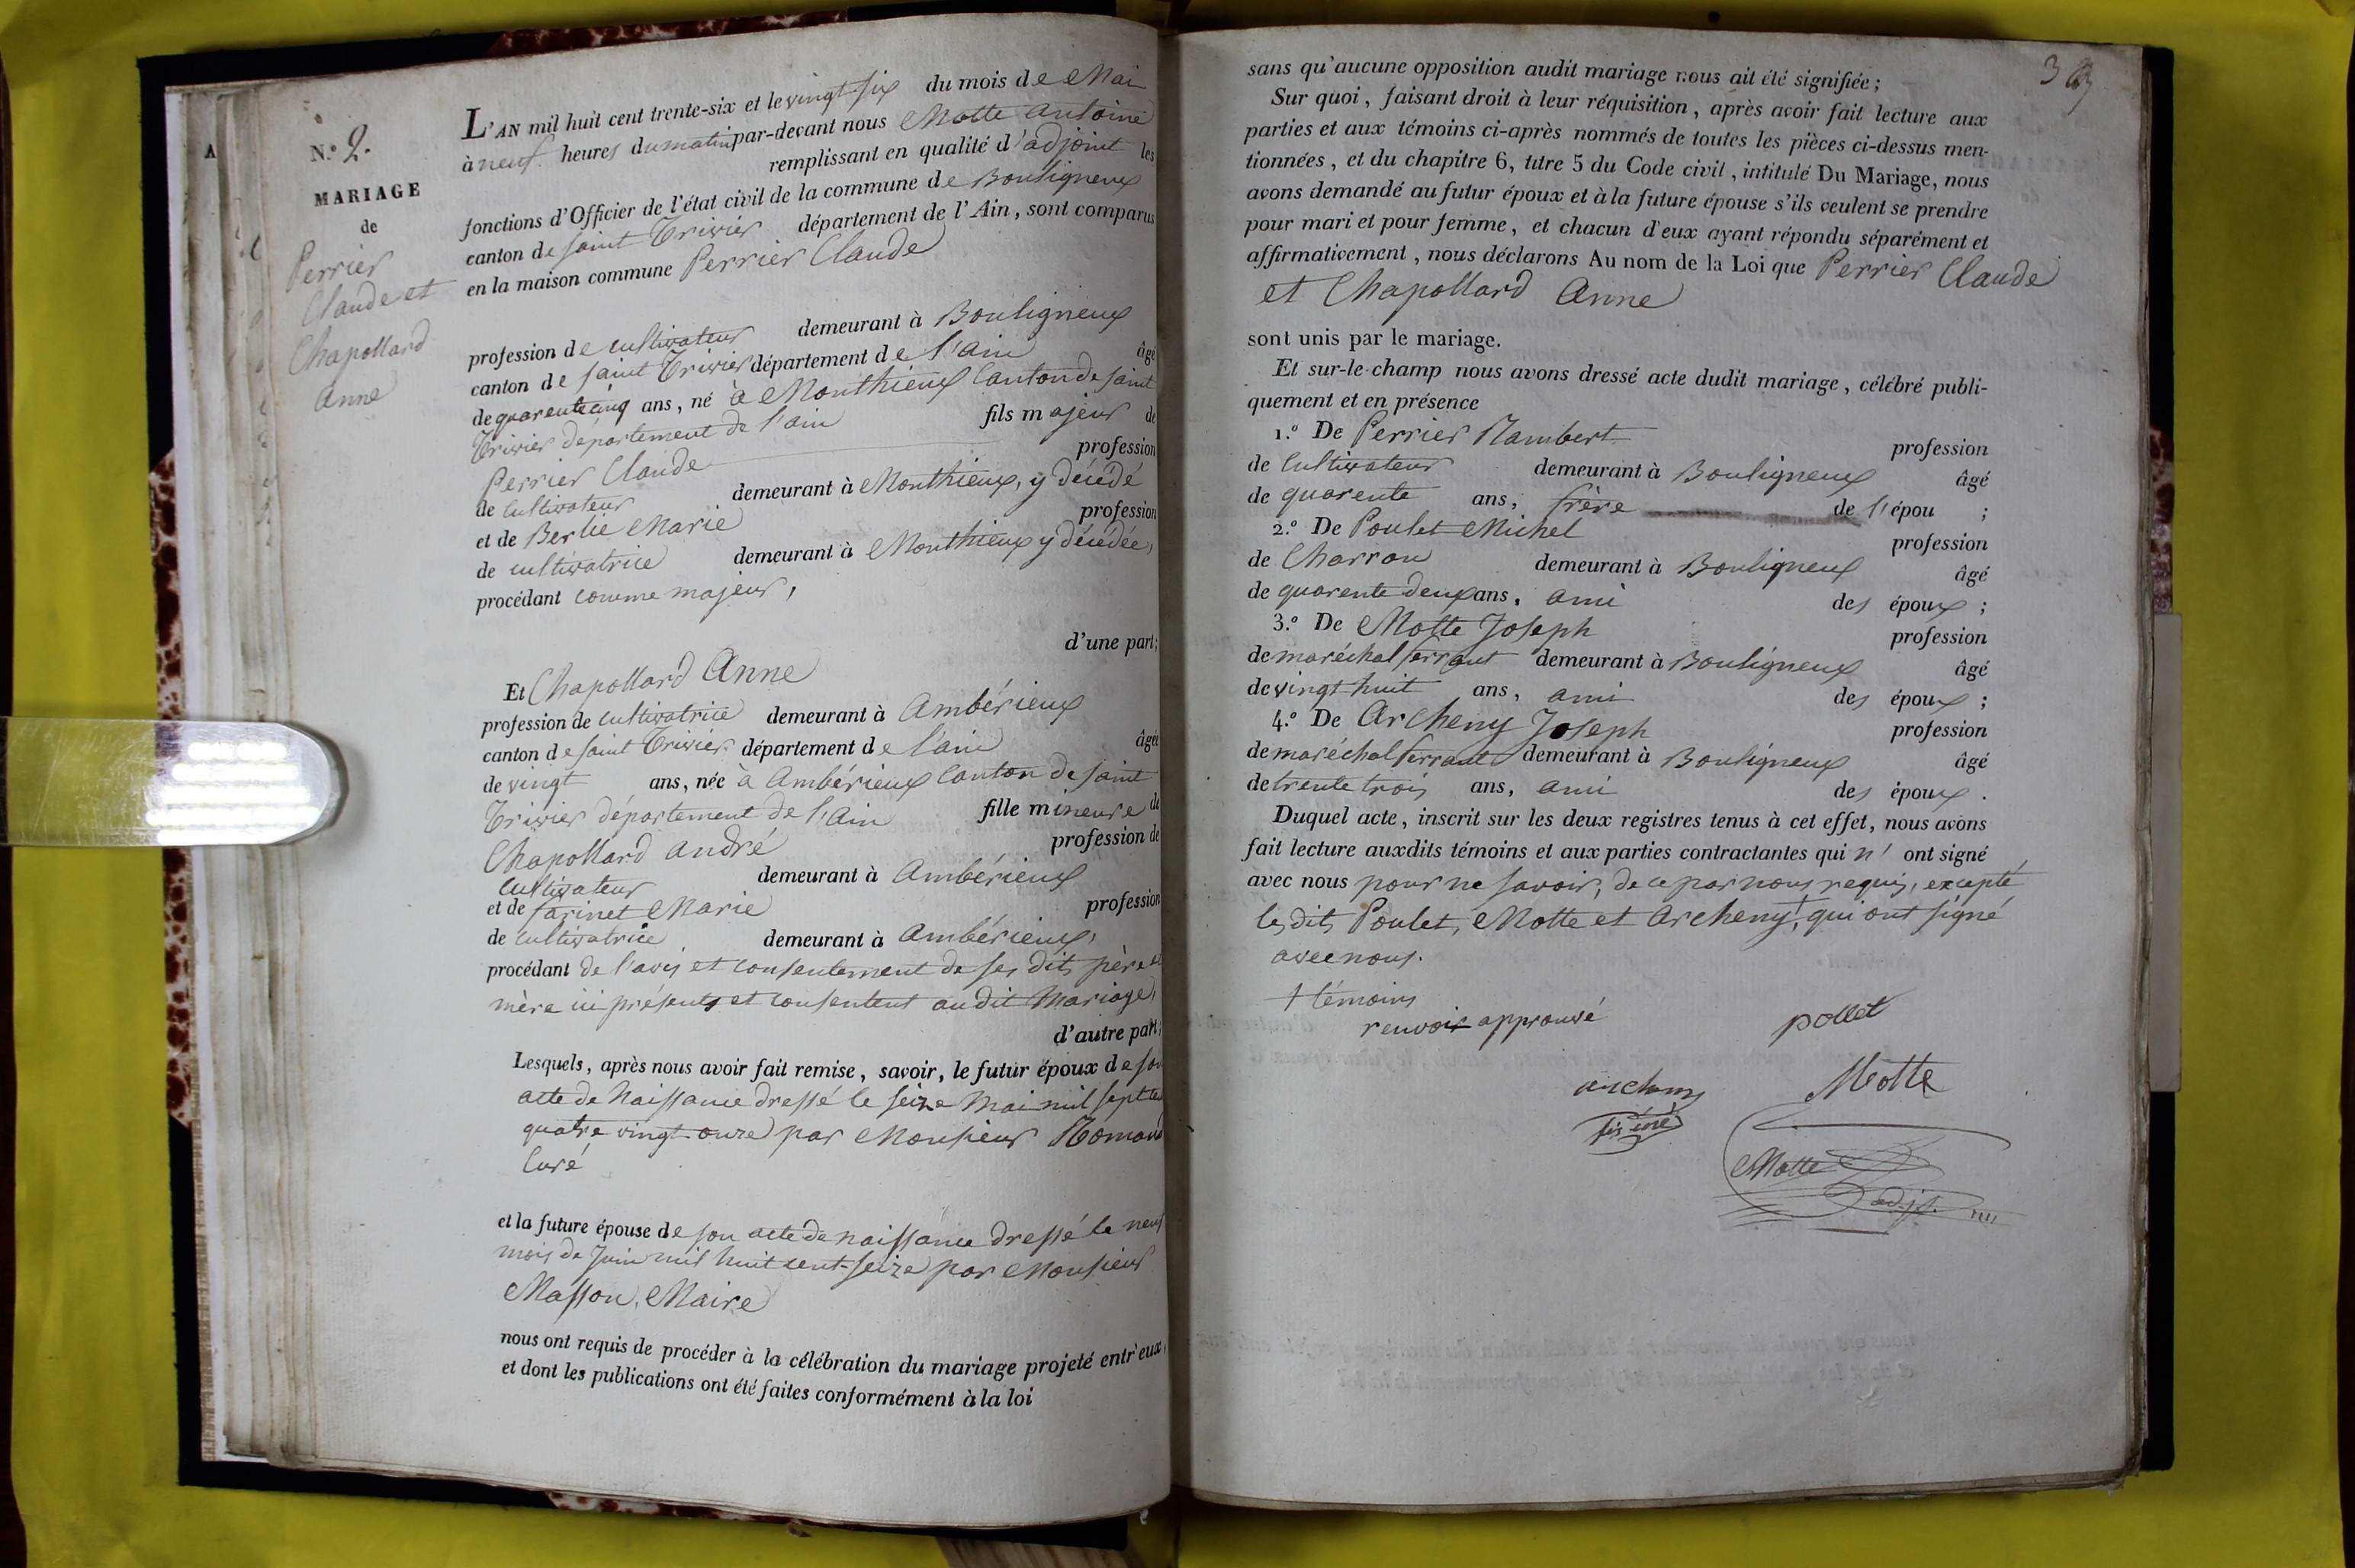 A
N.º 2.
MARIAGE
de
Perrier
Claude et
Chapollard
Anne
L'AN mil huit cent trente-six et le vingt-six du mois de Mai
à neuf heures du matin par-devant nous Motte Antoine
remplissant en qualité d'adjoint les
fonctions d'Officier de l'état civil de la commune de Bouligneux
canton de saint Trivier département de l'Ain, sont comparus
en la maison commune Perrier Claude
profession de cultivateur demeurant à Bouligneux
canton de saint Trivier département de l'ain âgé
de quarente cinq ans, né à Monthieux Canton de saint
Trivier département de l'ain fils majeur de
Perrier Claude profession
de cultivateur demeurant à Monthieux, y décédé
et de Berlie Marie profession
de cultivatrice demeurant à Monthieux y décédée,
procédant comme majeur,
d'une part;
Et Chapollard Anne
profession de cultivatrice demeurant à Ambérieux
canton de saint Trivier département de l'ain âgée
de vingt ans, née à Ambérieux Canton de saint
Trivier département de l'Ain fille mineure de
Chapollard André profession de
cultivateur demeurant à Ambérieux
et de Marie profession
de cultivatrice demeurant à Ambérieux,
procédant de l'avis et consentement de ses dits père et
mère ici présents et consentent au dit Mariage,
d'autre part;
Lesquels, après nous avoir fait remise, savoir, le futur époux de son
acte de Naissance dressé le seize Mai mil sept cent
quatre vingt onze par Monsieur
Curé
et la future épouse de son acte de naissance dressé le neuf
mois de Juin mil huit cent-seize par Monsieur
Masson, Maire
nous ont requis de procéder à la célébration du mariage projeté entr'eux,
et dont les publications ont été faites conformément à la loi
sans qu'aucune opposition audit mariage nous ait été signifiée;
Sur quoi, faisant droit à leur réquisition, après avoir fait lecture aux
parties et aux témoins ci-après nommés de toutes les pièces ci-dessus men-
tionnées, et du chapitre 6, titre 5 du Code civil, intitulé Du Mariage, nous
avons demandé au futur époux et à la future épouse s'ils veulent se prendre
pour mari et pour femme, et chacun d'eux ayant répondu séparément et
affirmativement, nous déclarons Au nom de la Loi que Perrier Claude
et Chapollard Anne
sont unis par le mariage.
Et sur-le-champ nous avons dressé acte dudit mariage, célébré publi-
quement et en présence
1.º De Perrier Rambert profession
de cultivateur demeurant à Bouligneux âgé
de quarente ans, frère de l'épou ;
2.º De Poulet Michel profession
de Charron demeurant à Bouligneux âgé
de quarente deux ans, ami des époux ;
3.º De Motte Joseph profession
de maréchal ferrant demeurant à Bouligneux âgé
de vingt huit ans, ami des époux ;
4.º De Archeny Joseph profession
de maréchal ferrant demeurant à Bouligneux âgé
de trente trois ans, ami des époux .
Duquel acte, inscrit sur les deux registres tenus à cet effet, nous avons
fait lecture auxdits témoins et aux parties contractantes qui n' ont signé
avec nous pour ne savoir, de ce par nous requis, excepté
les dits Poulet, Motte et Archeny,† qui ont signé
avec nous.
† témoins
renvoi approuvé
pollet
Motte
archeny
Motte
adjt.